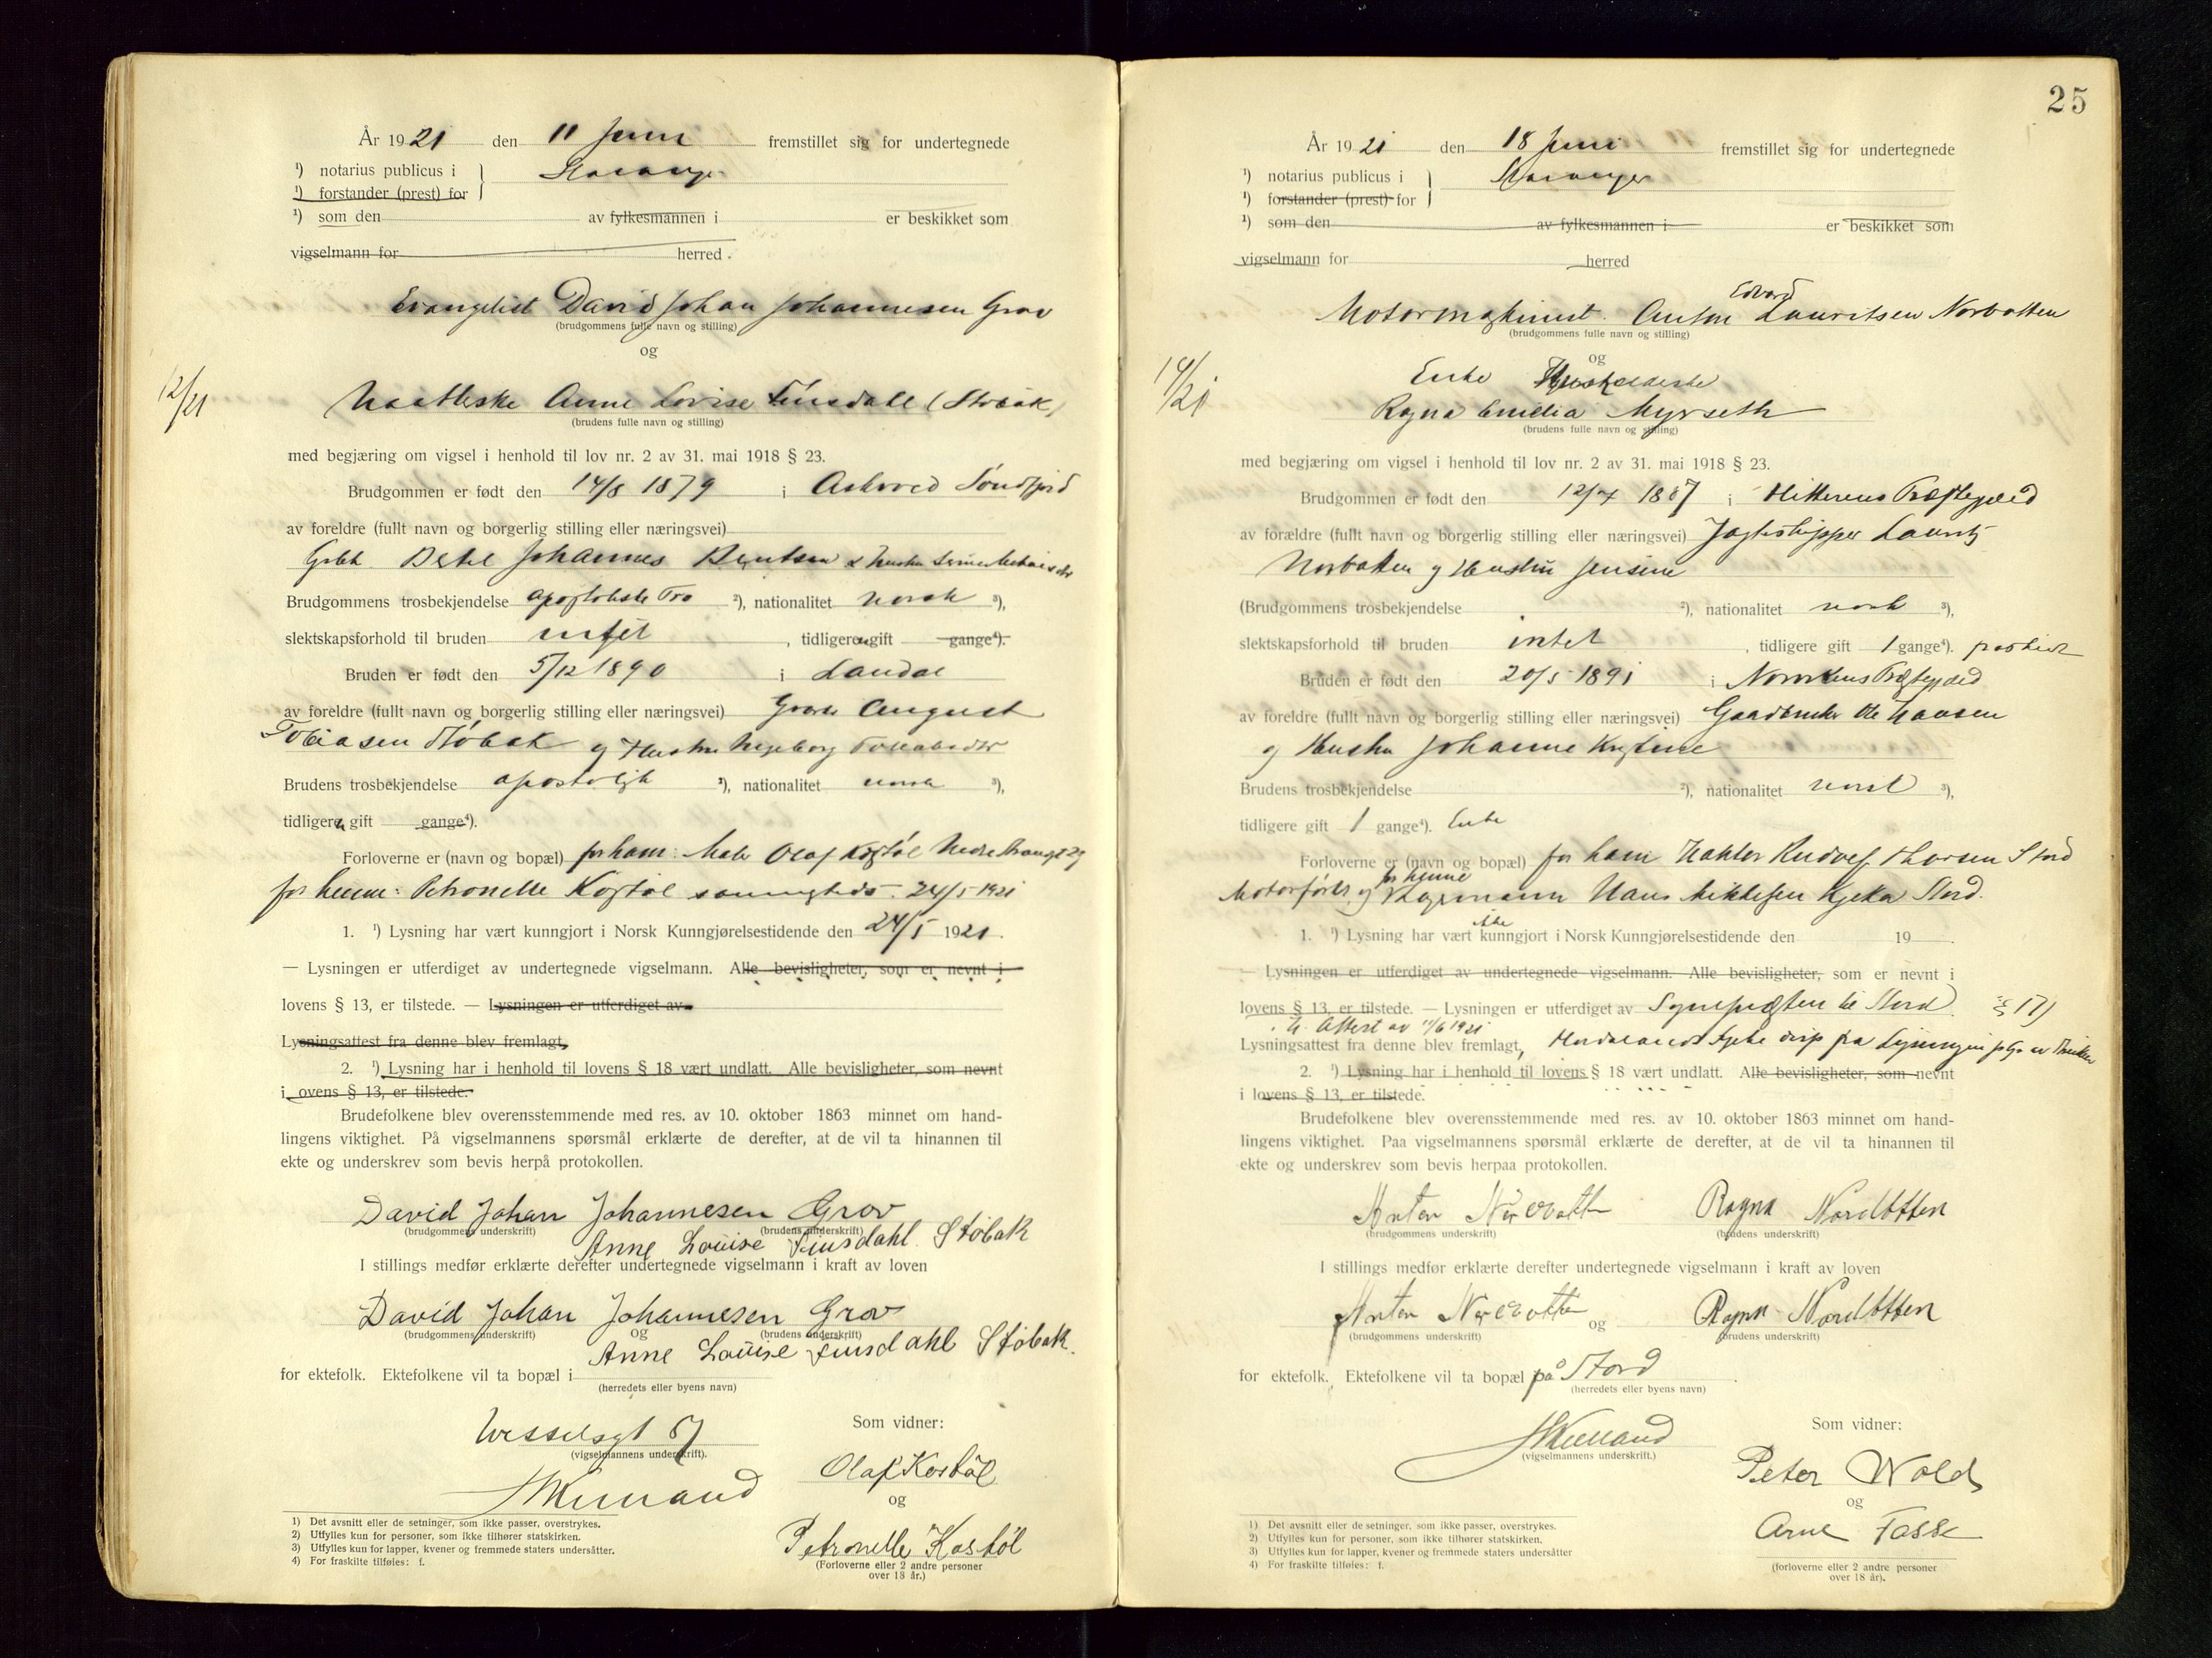 År 1921 den 11 Juni fremstillet sig for undertegnede
¹) notarius publicus i Stavanger
¹) forstander (prest) for
¹) som den av fylkesmannen i er beskikket som
vigselmann for herred.
Evangelist David Johan Johannesen Grov
(brudgommens fulle navn og stilling)
og
12/21
Anne Lovise Finsdahl (Støbak)
(brudens fulle navn og stilling)
med begjæring om vigsel i henhold til lov nr. 2 av 31. mai 1918 § 23.
Brudgommen er født den 14/8 1879 i Askvoll Søndfjord
av foreldre (fullt navn og borgerlig stilling eller næringsvei)
Johannes Bentsen &
Brudgommens trosbekjendelse apostolske Tro ²), nationalitet norsk ³),
slektskapsforhold til bruden intet, tidligere ei gift gange⁴).
Bruden er født den 5/12 1890 i Laudal
av foreldre (fullt navn og borgerlig stilling eller næringsvei) August
Tobiasen Støbak og Hustru Ingeborg
Brudens trosbekjendelse apostolisk ²), nationalitet norsk ³),
tidligere ei gift gange⁴).
Forloverne er (navn og bopæl) for ham: Maler Olaf Kostøl Nedre Strandgt 29
for henne: Petronelle Kostøl sammesteds. 24/5 1921
1. ¹) Lysning har vært kunngjort i Norsk Kunngjørelsestidende den 24/5 1921.
— Lysningen er utferdiget av undertegnede vigselmann. Alle bevisligheter, som er nevnt i
lovens § 13, er tilstede. — Lysningen er utferdiget av
Lysningsattest fra denne blev fremlagt,
2. ¹) Lysning har i henhold til lovens § 18 vært undlatt. Alle bevisligheter, som nevnt
i lovens § 13, er tilstede.
Brudefolkene blev overensstemmende med res. av 10. oktober 1863 minnet om hand-
lingens viktighet. På vigselmannens spørsmål erklærte de derefter, at de vil ta hinannen til
ekte og underskrev som bevis herpå protokollen.
David Johan Johannesen Grov
(brudgommens underskrift) (brudens underskrift)
Anne Louise Finsdahl Støbak
I stillings medfør erklærte derefter undertegnede vigselmann i kraft av loven
David Johan Johannesen Grov
(brudgommens underskrift) og (brudens underskrift)
Anne Louise Finsdahl Støbak.
for ektefolk. Ektefolkene vil ta bopæl i
(herredets eller byens navn)
Wesselsgt 57
(vigselmannens underskrift).
Som vidner:
Olaf Kostøl
og
Petronelle Kostøl
(Forloverne eller 2 andre personer
over 18 år.)
1) Det avsnitt eller de setninger, som ikke passer, overstrykes.
2) Utfylles kun for personer, som ikke tilhører statskirken.
3) Utfylles kun for lapper, kvener og fremmede staters undersåtter.
4) For fraskilte tilføies: f.
25
År 1921 den 18 Juni fremstillet sig for undertegnede
¹) notarius publicus i Stavanger
¹) forstander (prest) for
¹) som den av fylkesmannen i er beskikket som
vigselmann for herred
Edvard
Motormaskinist. Anton Lauritsen Norbotten
(brudgommens fulle navn og stilling)
og
14/21
Enke
Ragna Emilia Myrseth
(brudens fulle navn og stilling)
med begjæring om vigsel i henhold til lov nr. 2 av 31. mai 1918 § 23.
Brudgommen er født den 12/4 1887 i Hitterens Præstegjæld
av forældre (fullt navn og borgerlig stilling eller næringsvei) Jagtskipper Lauritz
Norbotten og Hustru Jensine
(Brudgommens trosbekjendelse ²), nationalitet norsk ³),
slektskapsforhold til bruden intet, tidligere gift 1 gange⁴).
Bruden er født den 20/5 1891 i Præstegjæld
av foreldre (fullt navn og borgerlig stilling eller næringsvei) Gaardbruker Ole Hansen
og Hustru Johanne Kristine
Brudens trosbekjendelse ²), nationalitet norsk ³),
tidligere gift 1 gange⁴). Enke
Forloverne er (navn og bopæl) for ham Thorsen Stord
for henne
Motorfører og Hans Mikkelsen Stord.
ikke
1. ¹) Lysning har vært kunngjort i Norsk Kunngjørelsestidende den 19
— Lysningen er utferdiget av undertegnede vigselmann. Alle bevisligheter, som er nevnt i
lovens § 13, er tilstede. — Lysningen er utferdiget av Sognepresten til Stord. § 17)
Attest av 11/6 1921
Lysningsattest fra denne blev fremlagt,
2. ¹) Lysning har i henhold til lovens § 18 vært undlatt. Alle bevisligheter, som nevnt
i lovens § 13, er tilstede.
Brudefolkene blev overensstemmende med res. av 10. oktober 1863 minnet om hand-
lingens viktighet. Paa vigselmannens spørsmål erklærte de derefter, at de vil ta hinannen til
ekte og underskrev som bevis herpaa protokollen.
Anton Norbotten Ragna Nordbotten
(brudgommens underskrift) (brudens underskrift)
I stillings medfør erklærte derefter undertegnede vigselmann i kraft av loven
Anton Norbotten og Ragna Nordbotten
(brudgommens underskrift) (brudens underskrift)
for ektefolk. Ektefolkene vil ta bopæl på Stord
(herredets eller byens navn)
(vigselmannens underskrift.)
Som vidner:
Peter Wold
og
Arne Tasse
(forloverne eller 2 andre personer
over 18 år).
1) Det avsnitt eller de setninger, som ikke passer, overstrykes.
2) Utfylles kun for personer, som ikke tilhører statskirken.
3) Utfylles kun for lapper, kvener og fremmede staters undersåtter
4) For fraskilte tilføies: f.